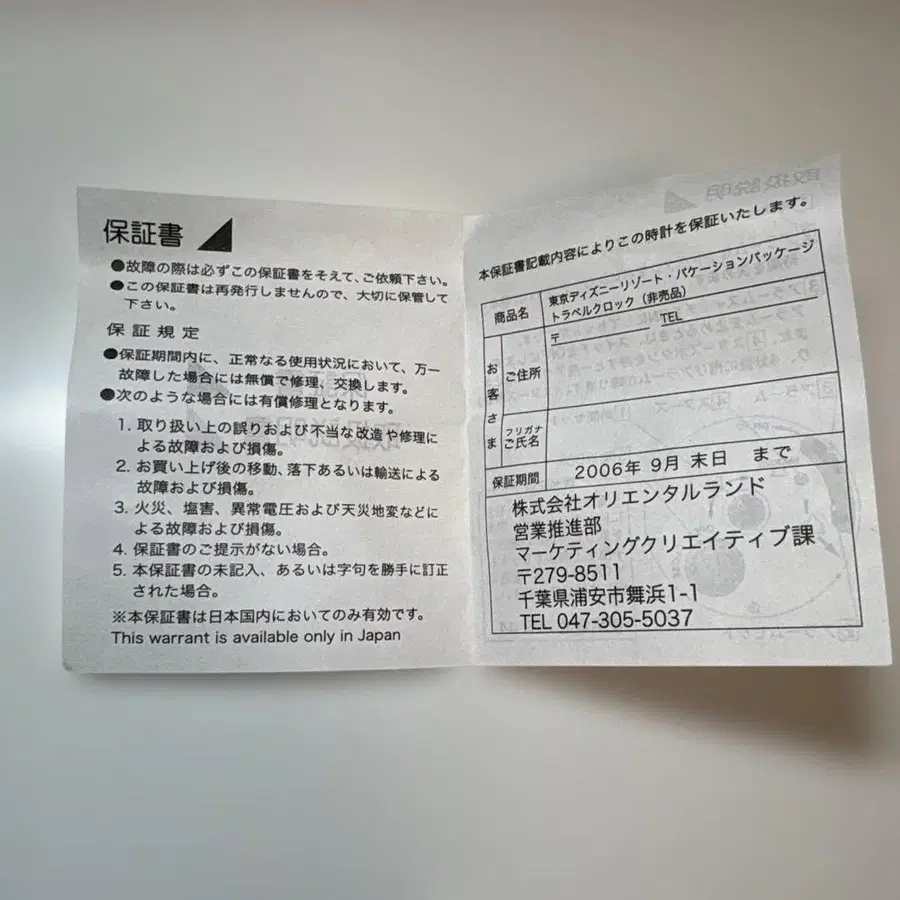 保証書
●故障の際は必ずこの保証書をそえて、ご依頼下さい。
●この保証書は再発行しませんので、大切に保管して
下さい。
保証規定
●保証期間内に、正常なる使用状況において、万一
故障した場合には無償で修理、交換します。
●次のような場合には有償修理となります。
1. 取り扱い上の誤りおよび不当な改造や修理に
よる故障および損傷。
2. お買い上げ後の移動、落下あるいは輸送による
故障および損傷。
3. 火災、塩害、異常電圧および天災地変などに
よる故障および損傷。
4. 保証書のご提示がない場合。
5. 本保証書の未記入、あるいは字句を勝手に訂正
された場合。
※本保証書は日本国内においてのみ有効です。
This warrant is available only in Japan
本保証書記載内容によりこの時計を保証いたします。
商品名
東京ディズニーリゾート・バケーションパッケージ
トラベルクロック（非売品）
お客さま
ご住所
〒 TEL
フリガナ
ご氏名
保証期間
2006年 9月 末日 まで
株式会社オリエンタルランド
営業推進部
マーケティングクリエイティブ課
〒279-8511
千葉県浦安市舞浜1-1
TEL 047-305-5037